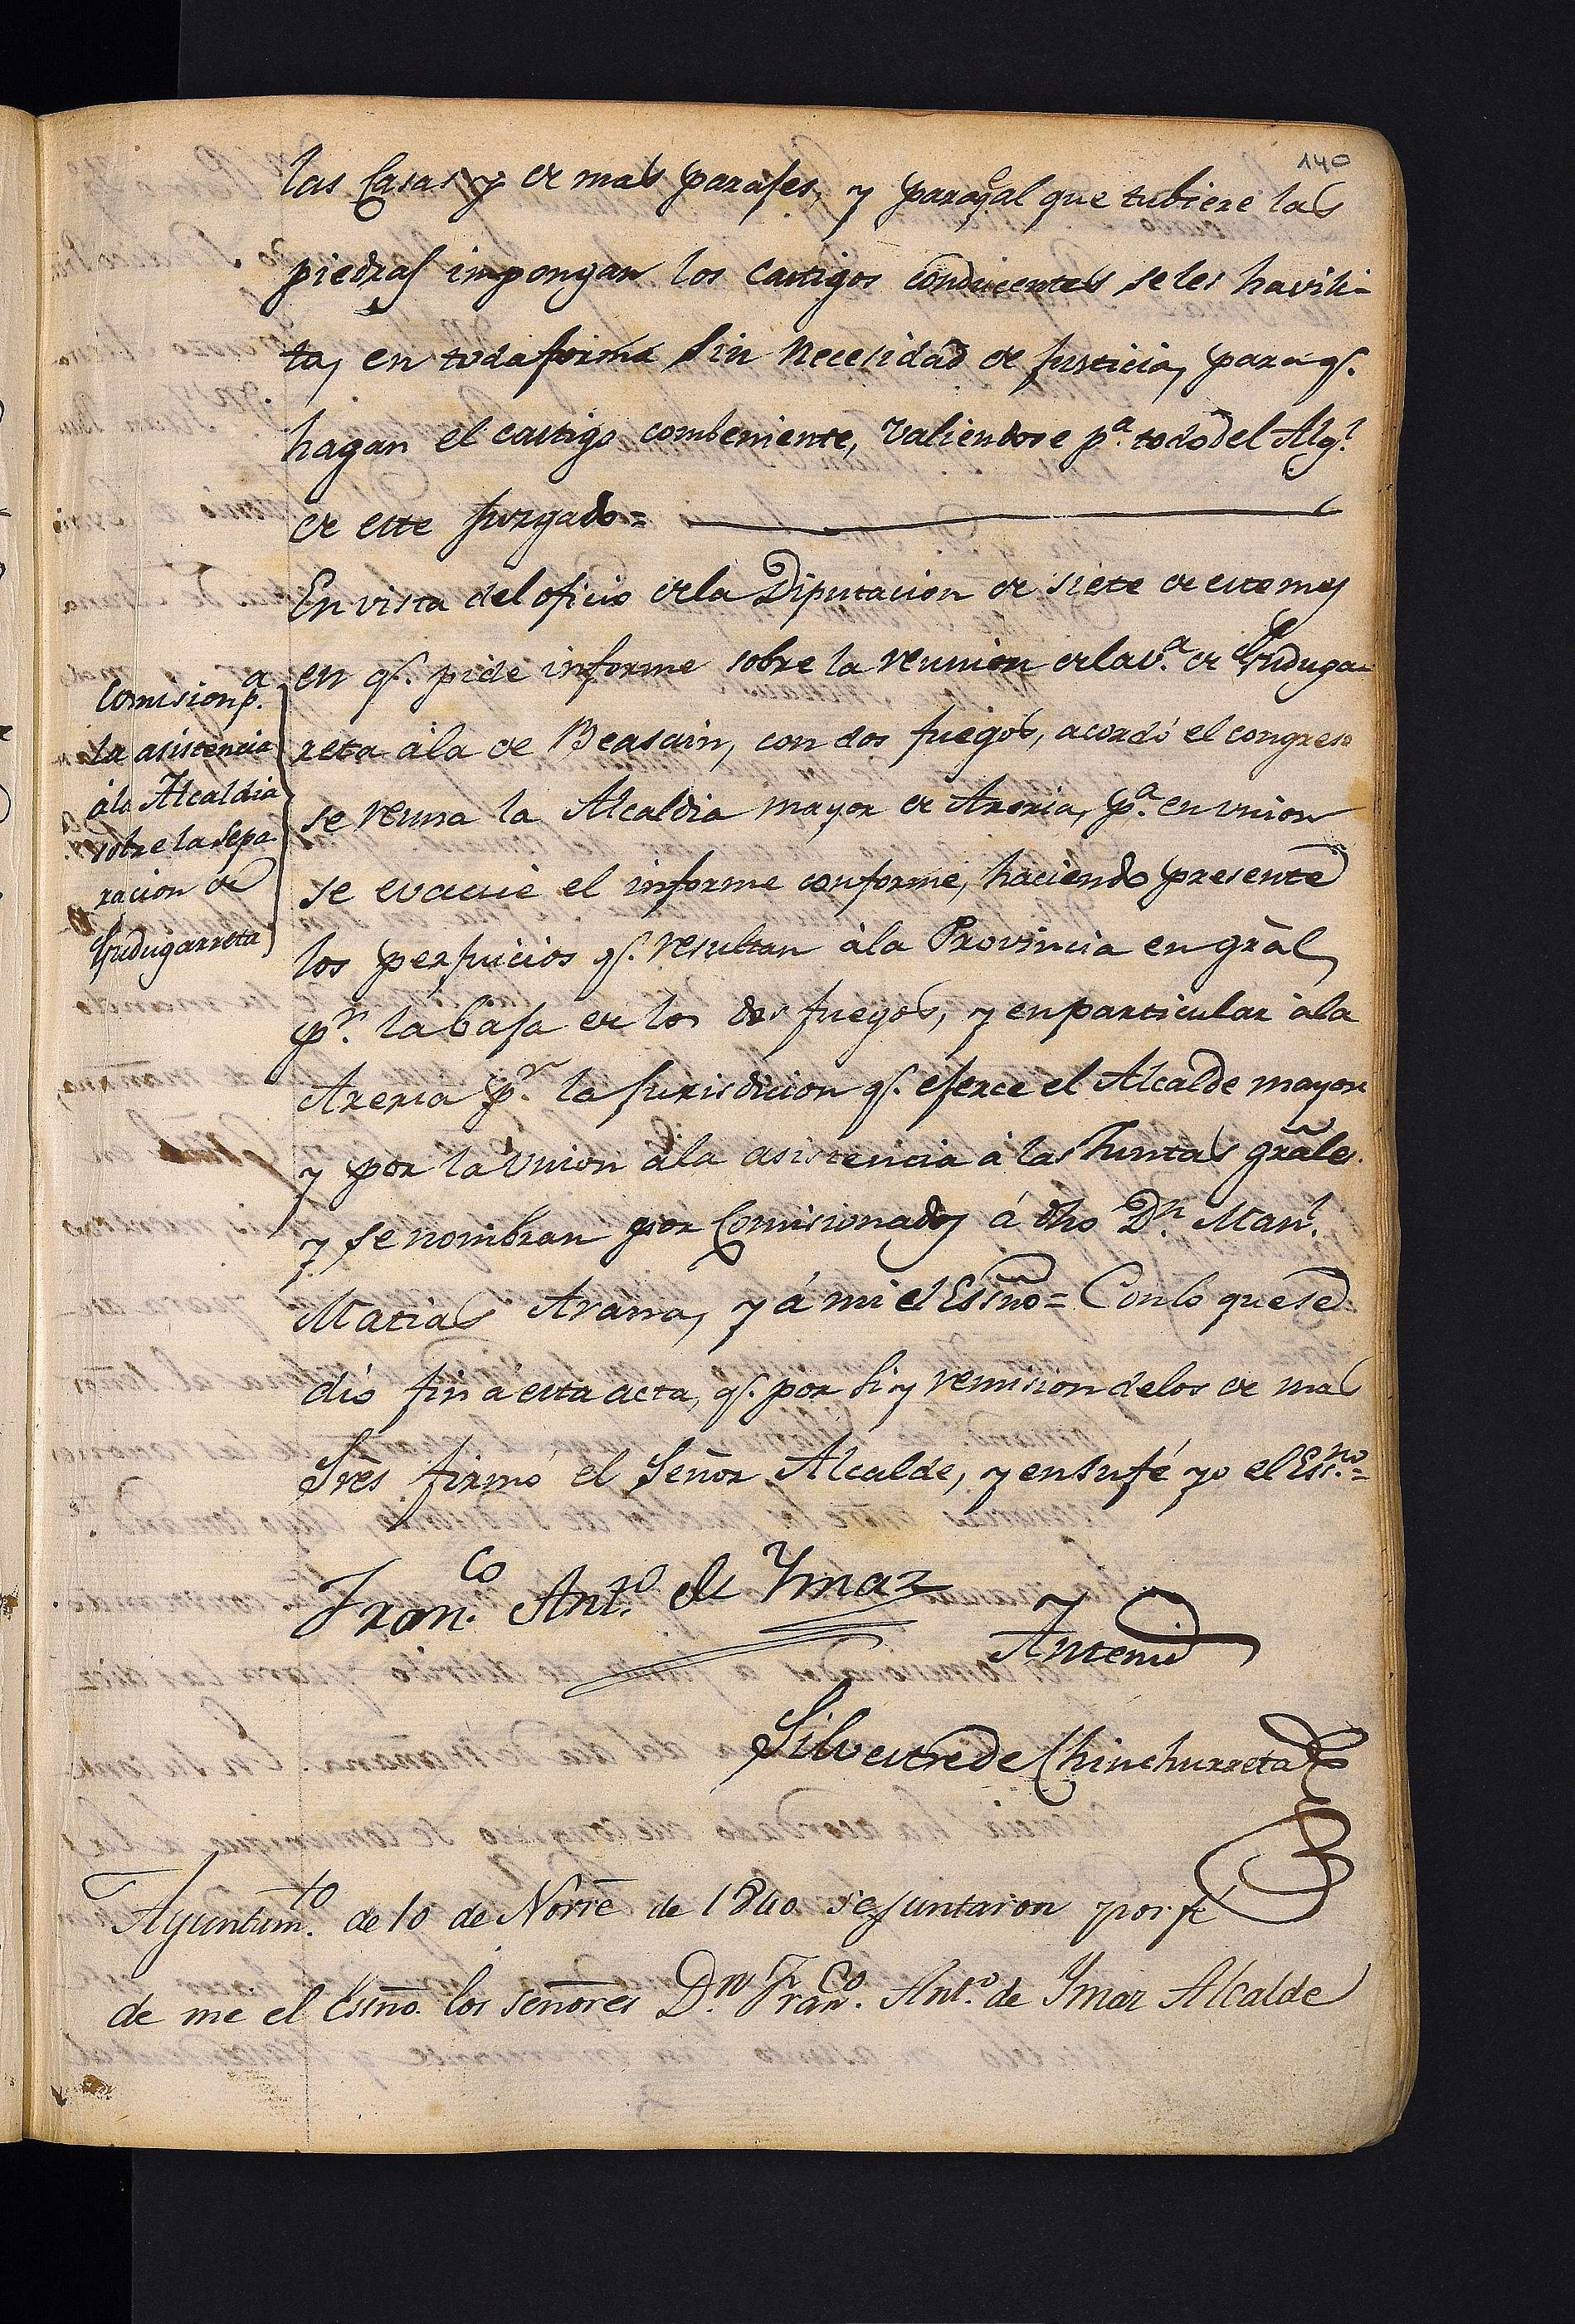 140
las Casas y de mas parajes, y paraq.e al que tubiere las
piedras impongan los castigos conducentes se les havili-
ta, en toda forma sin necesidad de Justicia, para q.e
hagan el castigo combeniente, valiendose p.a todo del Alg.l
de este Juzgado=
En vista del oficio dela Diputacion de siete de este mes
en q.e pide informe sobre la reunion dela v.a de Guduga-
rreta á la de Beasain, con dos fuegos, acordó el congreso
se reuna la Alcaldia mayor de Areria, p.a en union
se evacué el informe conforme, haciendo presente
los perjuicios q.e resultan á la Provincia en grãl,
p.r la baja de los dos fuegos, y en particular á la
Areria p.r la Jurisdicion q.e ejerce el Alcalde mayor
y por la Union á la asistencia á las Juntas grãles.
y se nombran por Comisionados á dho D.n Man.l
Matias Arana, y á mi el Essño= Conlo que se
dió fin á esta acta, q.e por si y remision delos de mas
Srẽs firmó el Señor Alcalde, y en su fé yo el Ess.no=
Comision p.a
la asistencia
á la Alcaldia
sobre la sepa
racion de
Gudugarreta
Fran.co Ant.o de Ymaz
Antemi
Silvestre de Chinchurreta
Ayuntam.to de 10 de Novre de 1840 se juntaron por fe
de me el Essño. los señores D.n Fran.co Ant.o de Ymaz Alcalde